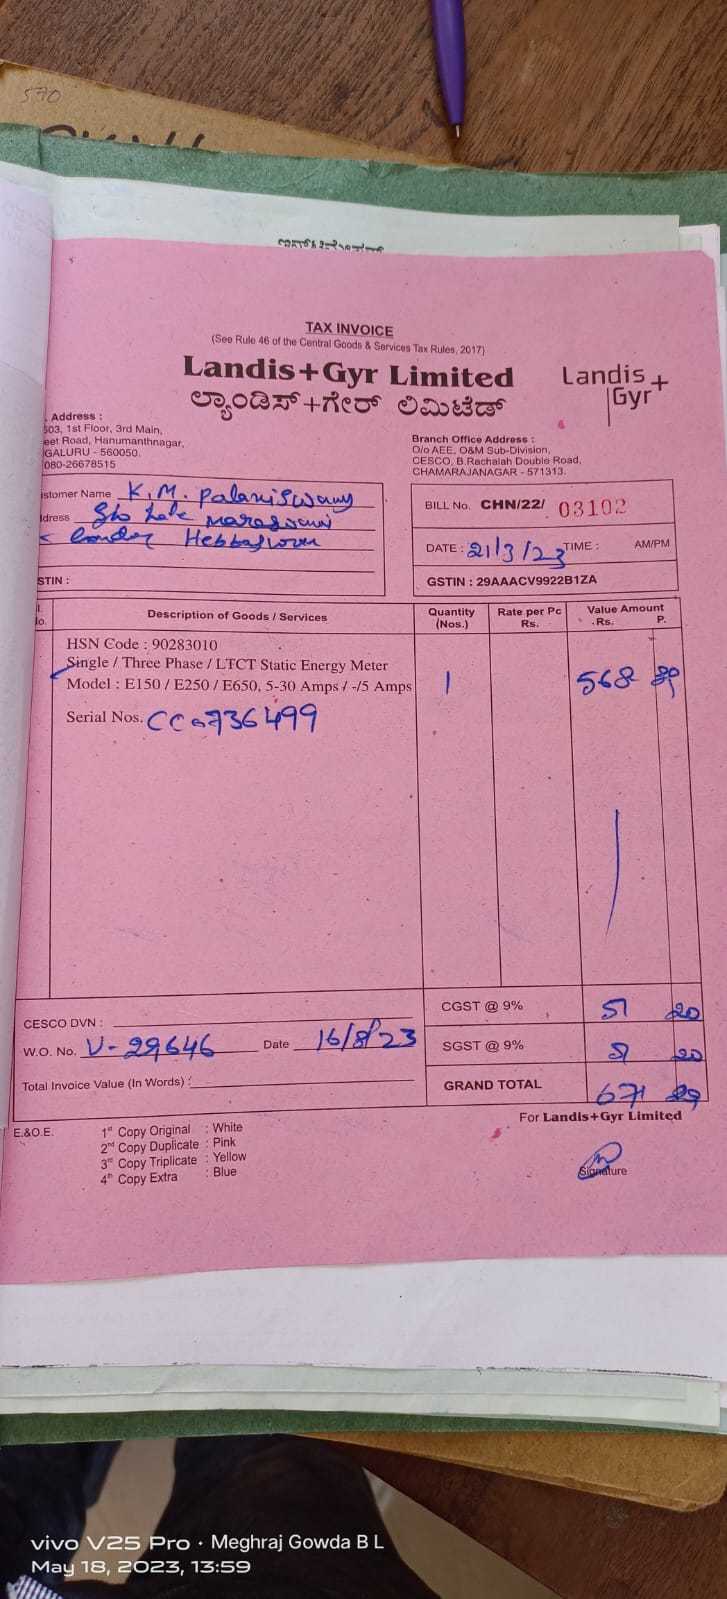 570
TAX INVOICE
(See Rule 46 of the Central Goods & Services Tax Rules, 2017)
Landis+Gyr Limited
ಲ್ಯಾಂಡಿಸ್+ಗೇರ್ ಲಿಮಿಟೆಡ್
Landis+
Gyr
Address :
603, 1st Floor, 3rd Main,
eet Road, Hanumanthnagar,
GALURU - 560050.
080-26678515
Branch Office Address :
O/o AEE, O&M Sub-Division,
CESCO, B.Rachaiah Double Road,
CHAMARAJANAGAR - 571313.
stomer Name K.M. Palaniswamy
dress S/o Late
STIN :
BILL No. CHN/22/ 03102
DATE : 21/3/23 TIME : AM/PM
GSTIN : 29AAACV9922B1ZA
l. No. Description of Goods / Services Quantity (Nos.) Rate per Pc Rs. Value Amount Rs. P.
HSN Code : 90283010
Single / Three Phase / LTCT Static Energy Meter
Model : E150 / E250 / E650, 5-30 Amps / -/5 Amps 1 568 89
Serial Nos. CC0736499
CGST @ 9% 51 20
SGST @ 9% 51 20
GRAND TOTAL 671 29
CESCO DVN :
W.O. No. V-29646 Date 16/8/23
Total Invoice Value (In Words) :
For Landis+Gyr Limited
Signature
E.&O.E.
1st Copy Original : White
2nd Copy Duplicate : Pink
3rd Copy Triplicate : Yellow
4th Copy Extra : Blue
vivo V25 Pro · Meghraj Gowda B L
May 18, 2023, 13:59